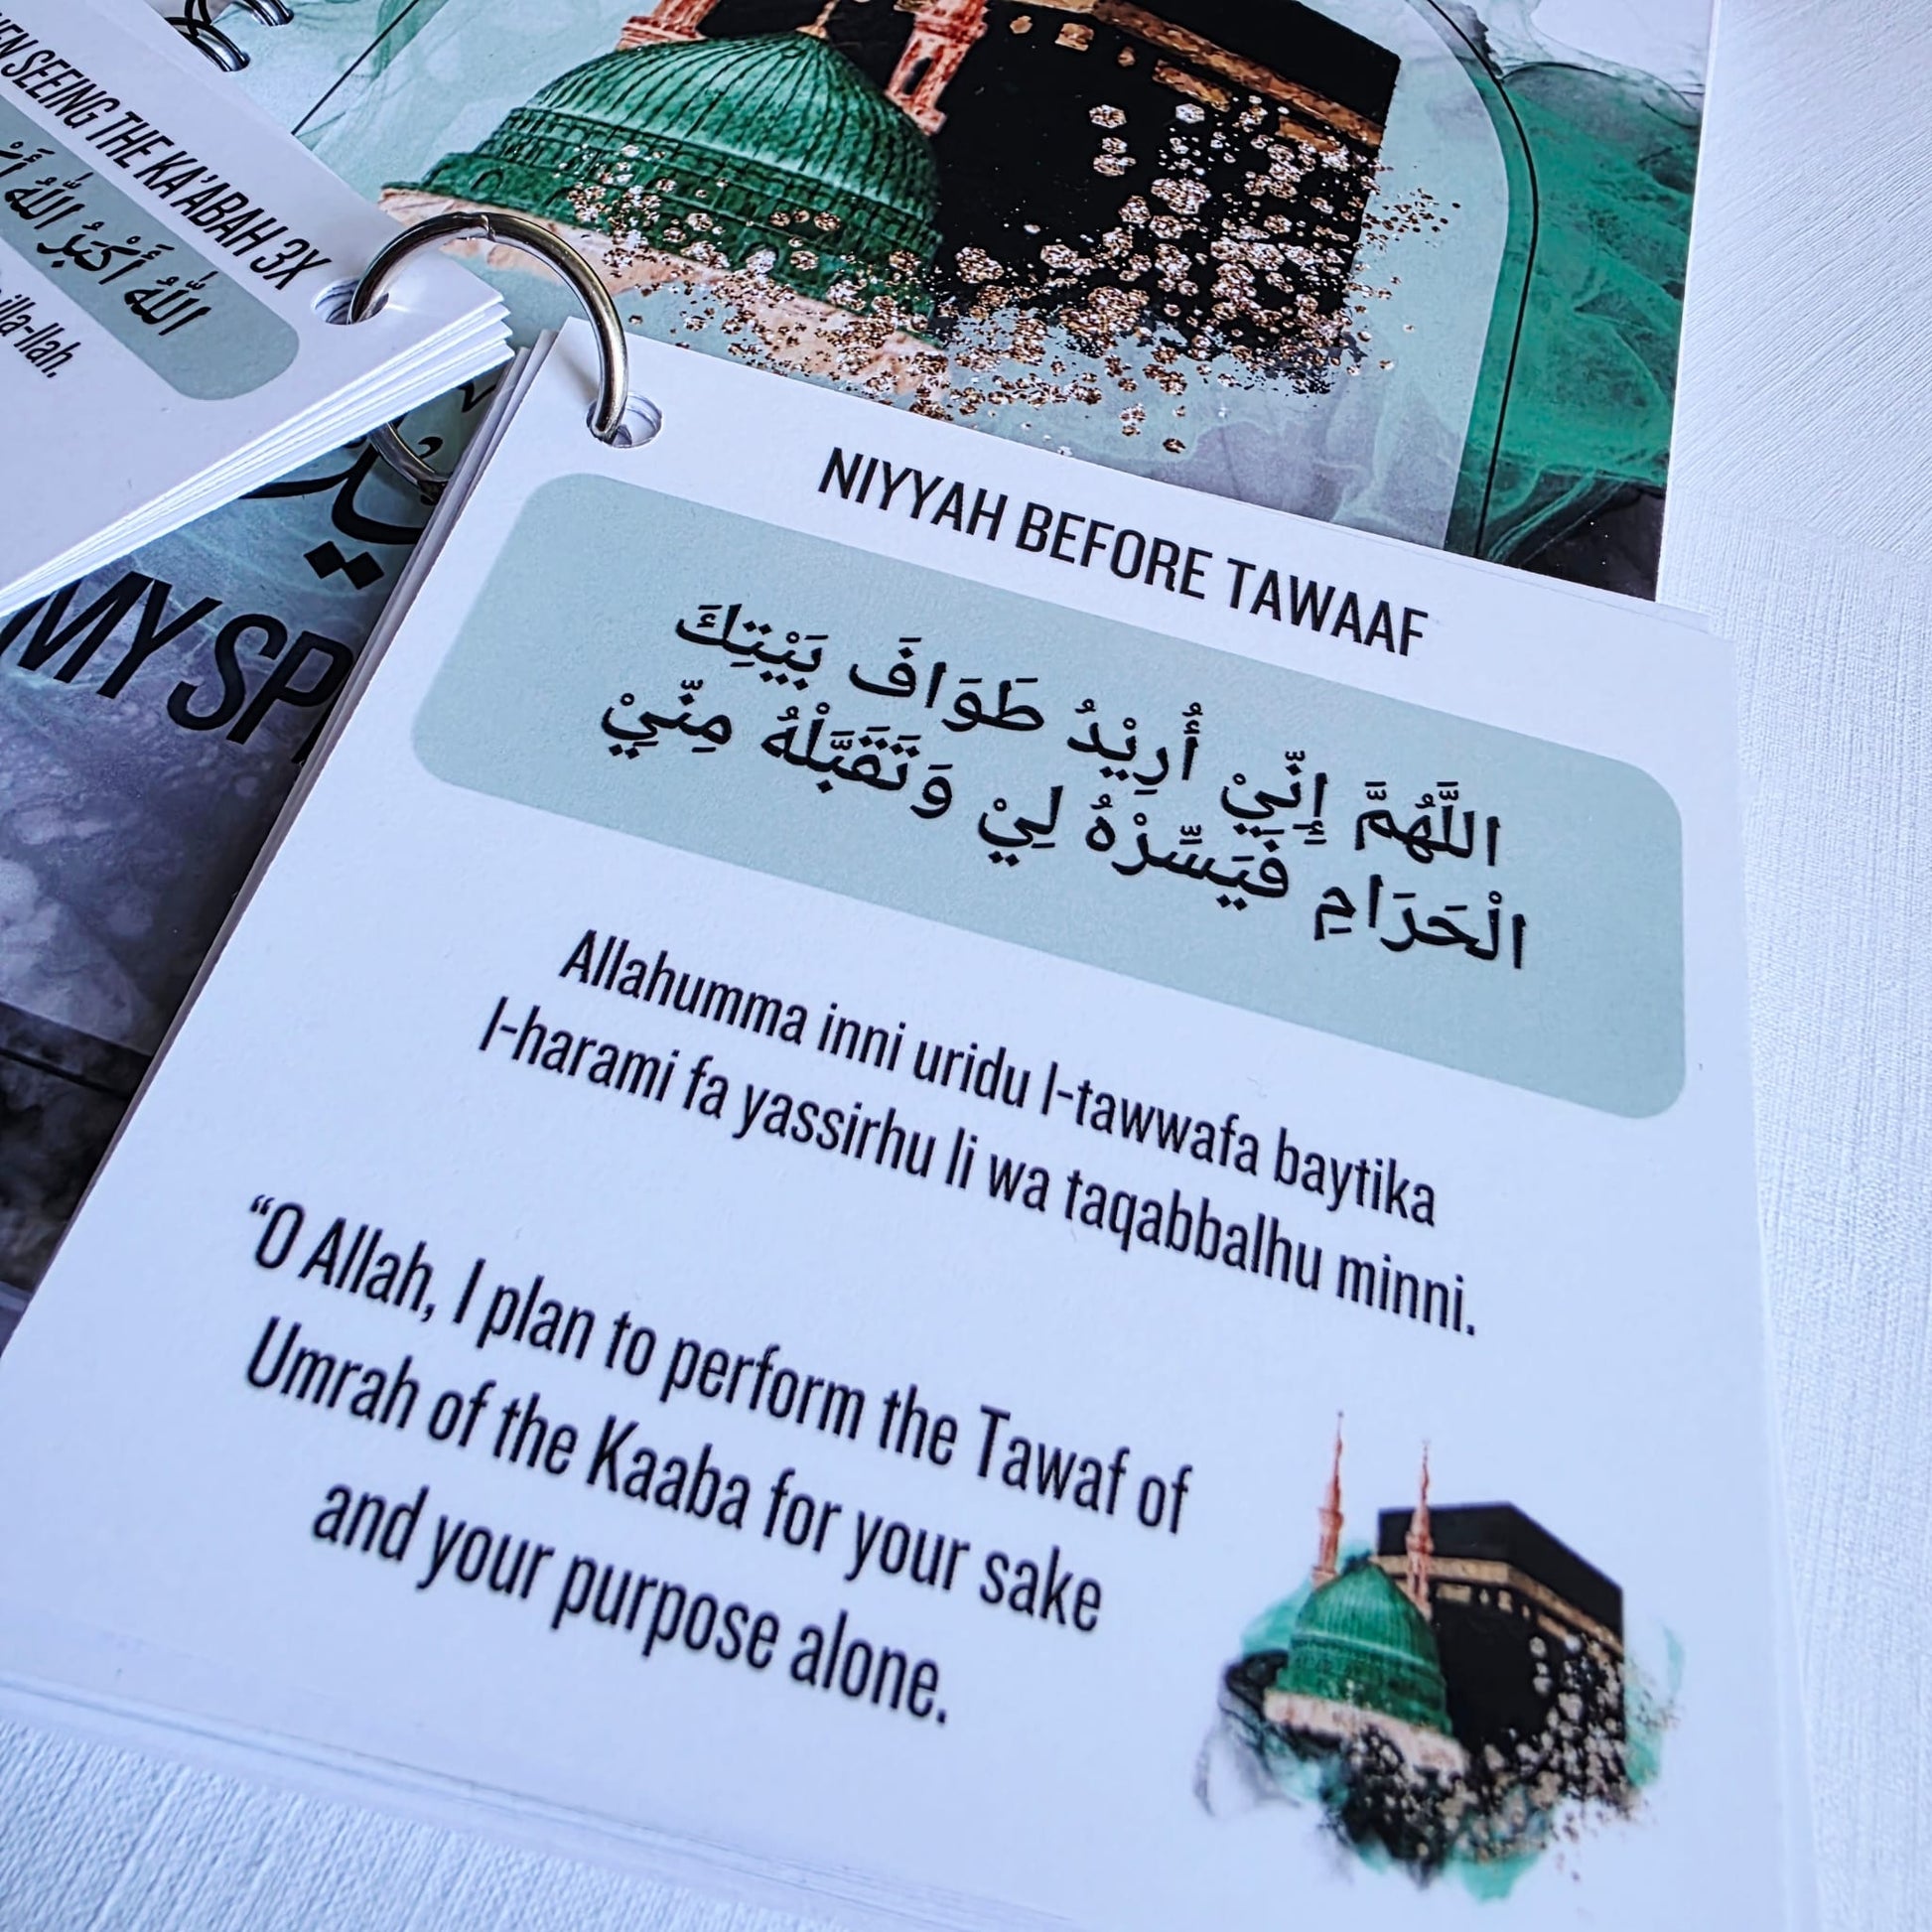 SEEING THE KA'ABAH 3X
اللهُ أَكْبَرُ اللهُ
illa-llah.
MY
NIYYAH BEFORE TAWAAF
اللَّهُمَّ إِنِّيْ أُرِيْدُ طَوَافَ بَيْتِكَ
الْحَرَامِ فَيَسِّرْهُ لِيْ وَتَقَبَّلْهُ مِنِّيْ
Allahumma inni uridu l-tawwafa baytika
l-harami fa yassirhu li wa taqabbalhu minni.
“O Allah, I plan to perform the Tawaf of
Umrah of the Kaaba for your sake
and your purpose alone.